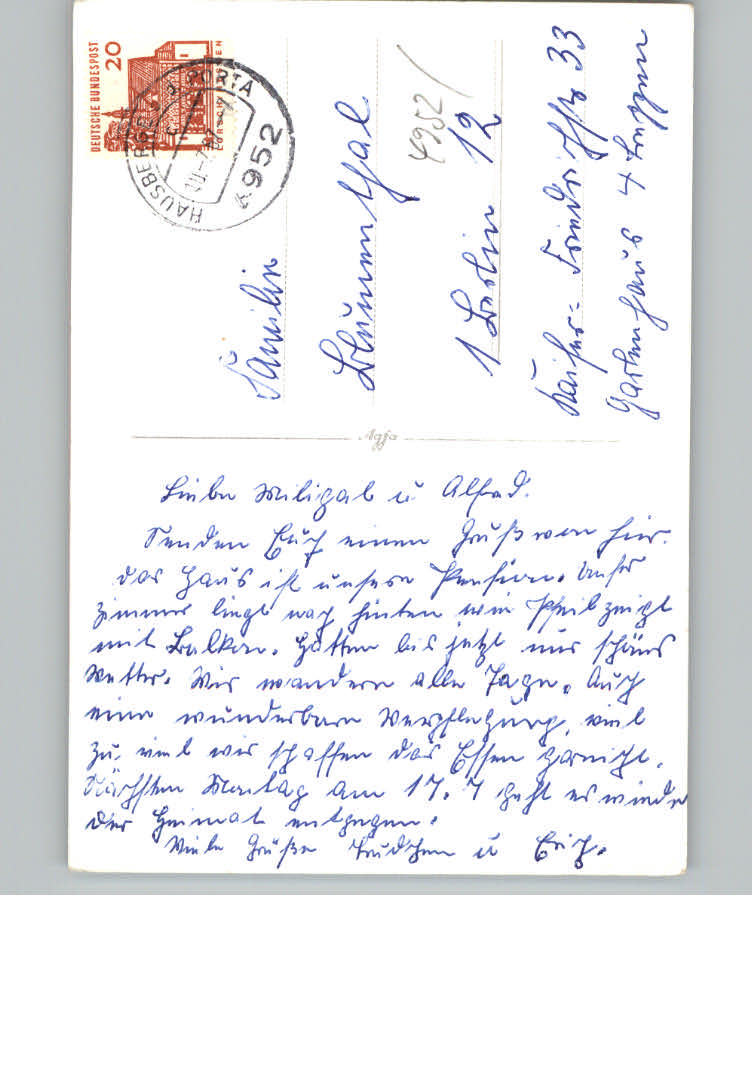 DEUTSCHE BUNDESPOST
20
HAUSBERGE A.D. PORTA
4952
Familie
Blumenthal
4952/
1 Berlin 12
Kaiser-Friedrichstr 33
Gartenhaus 4 Treppen
Agfa
Liebe u Alfred.
Senden Euch einen Gruß von hier.
das Haus ist unsere Pension. Unser
Zimmer liegt nach hinten wie Pfeil zeigt
mit Balkon. Hatten bis jetzt nur schönes
Wetter. Wir wandern alle Tage. Auch
eine wunderbare Verpflegung, viel
zu viel wir schaffen das Essen garnicht.
Nächsten Montag am 17.7 geht es wieder
der Heimat entgegen.
Viele Grüße Trudchen u Erich.